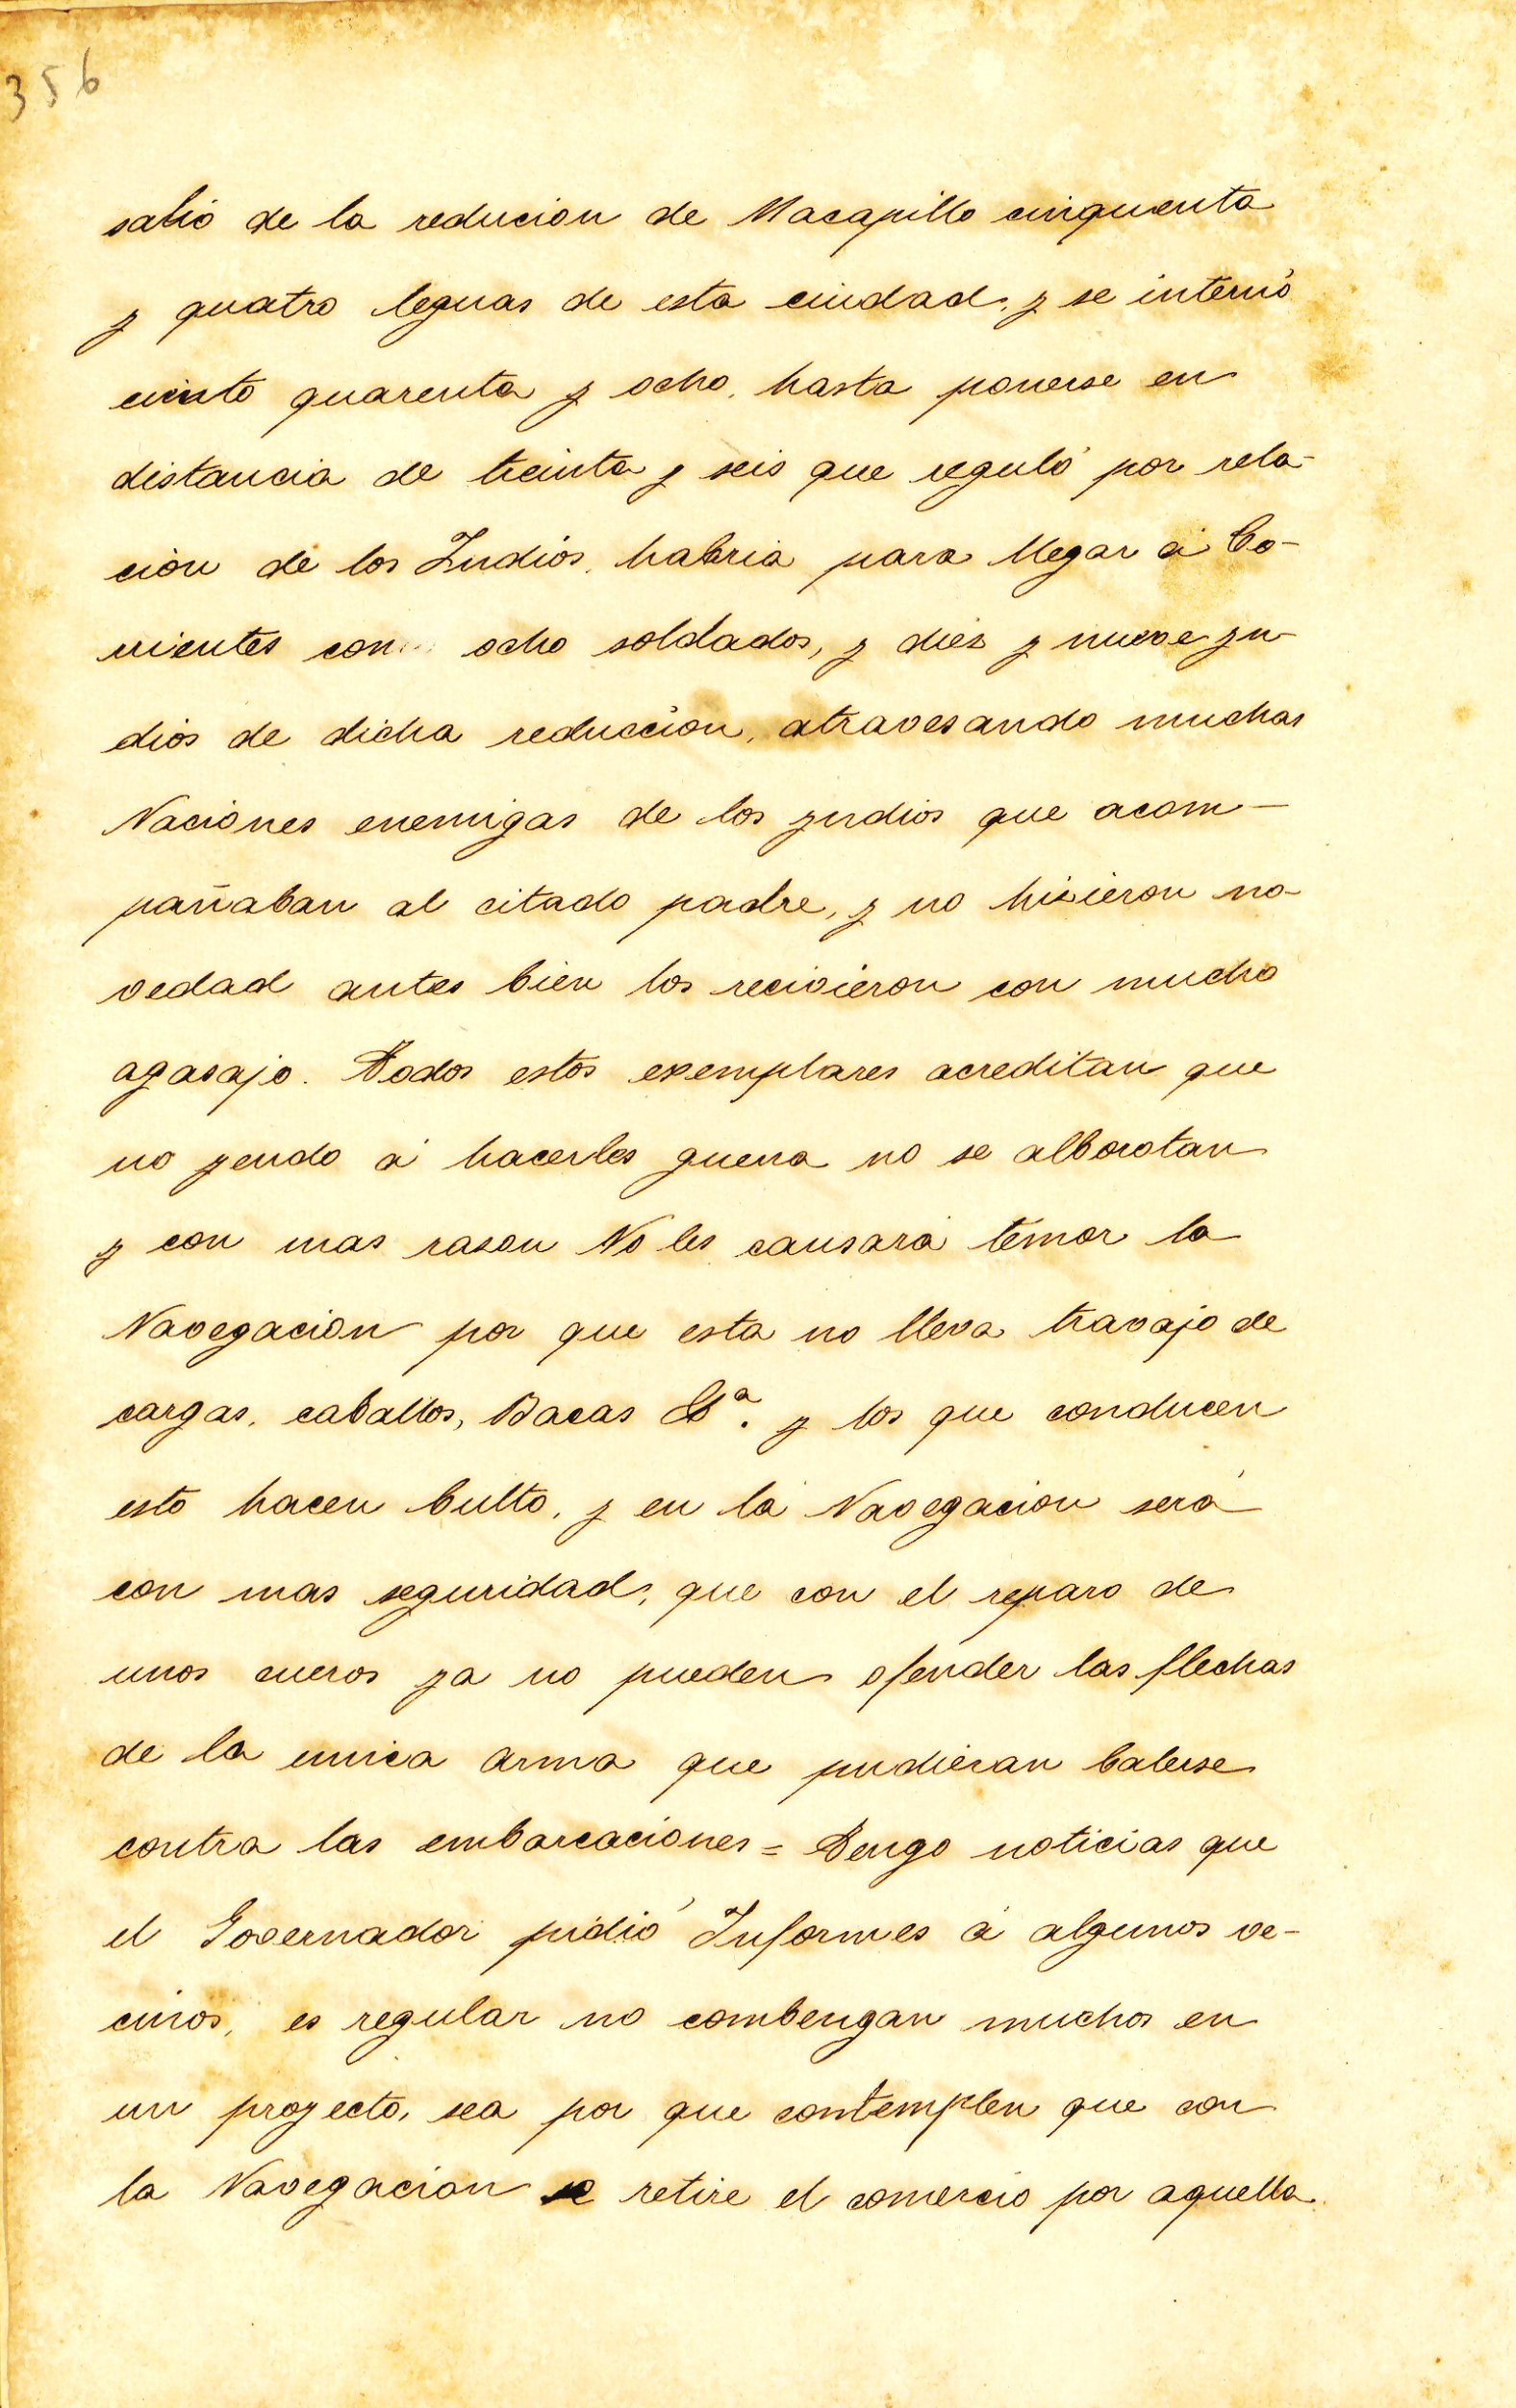 356
salió de la reducion de Macapillo cinquenta
y quatro leguas de esta ciudad, y se internó
ciento quarenta y ocho, hasta ponerse en
distancia de treinta y seis que reguló por rela-
cion de los Indios, habria para llegar á Co-
rrientes con ocho soldados, y diez y nueve yn-
dios de dicha reduccion, atravesando muchas
Naciones enemigas de los yndios que acom-
pañaban al citado padre, y no hisieron no-
vedad antes bien los recivieron con mucho
agasajo. Todos estos exemplares acreditan que
no yendo á hacerles guerra no se alborotan
y con mas rason No les causará temor la
Navegacion por que esta no lleva travajo de
cargas, caballos, Bacas &ª. y los que conducen
esto hacen bulto, y en la Navegacion será
con mas seguridad, que con el reparo de
unos cueros ya no pueden ofender las flechas
de la unica arma que pudieran balerse
contra las embarcaciones = Tengo noticias que
el Governador pidió Informes á algunos ve-
cinos, es regular no combengan muchos en
un proyecto, sea por que contemplen que con
la Navegacion se retire el comercio por aquella